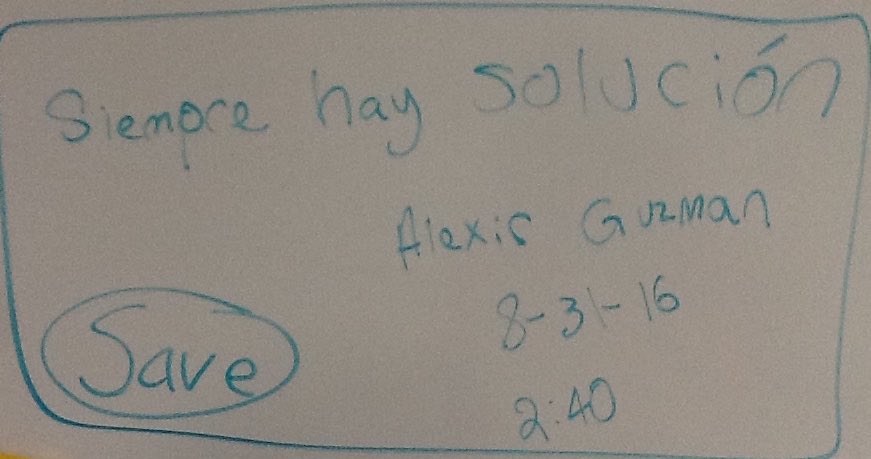 Siempre hay solución
Alexis Guzman
8-31-16
Save
2:40